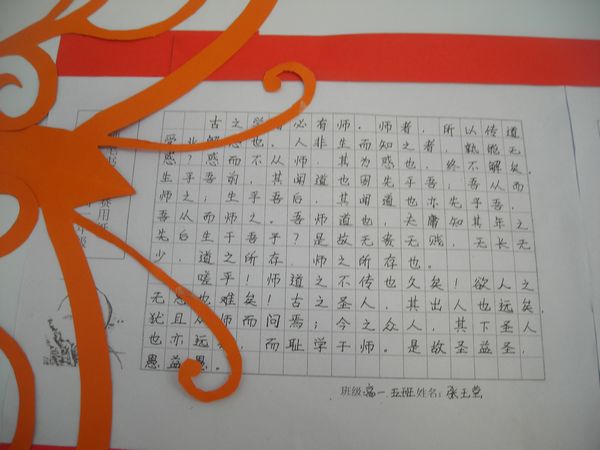 古之学 必有师。师者,所以传道
受业解惑也。人非生而知之者,孰能无
惑?惑而不从师,其为惑也,终不解矣。
生乎吾前,其闻道也固先乎吾,吾从而
师之;生乎吾后,其闻道也亦先乎吾,
吾从而师之。吾师道也,夫庸知其年之
先后生于吾乎?是故无贵无贱,无长无
少,道之所存,师之所存也。
嗟乎!师道之不传也久矣!欲人之
无 也难矣!古之圣人,其出人也远矣,
犹且从师而问焉;今之众人,其下圣人
也亦远 ,而耻学于师。是故圣益圣,
愚益愚。
班级:高一五班 姓名:张玉莹